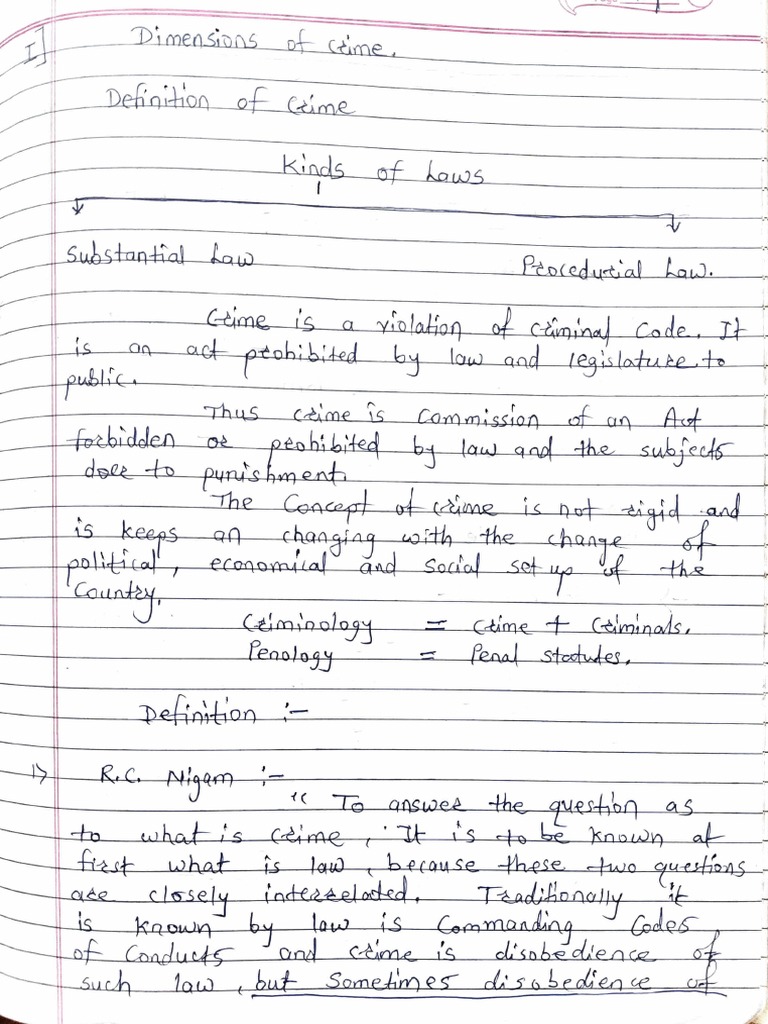 I]
Dimensions of crime.
Definition of crime
Kinds of Laws
Substantial Law
Procedurial Law.
Crime is a violation of criminal Code. It
is an act prohibited by law and legislature to
public.
Thus crime is Commission of an Act
forbidden or prohibited by law and the subjects
doer to punishment.
The Concept of crime is not rigid and
is keeps an changing with the change of
political, economical and social set up of the
Country.
Criminology = crime + Criminals.
Penology = Penal statutes.
Definition :-
1> R.C. Nigam :-
"To answer the question as
to what is crime, It is to be known at
first what is law, because these two questions
are closely interrelated. Traditionally it
is known by law is Commanding Codes
of Conducts and crime is disobedience of
such law, but Sometimes disobedience of